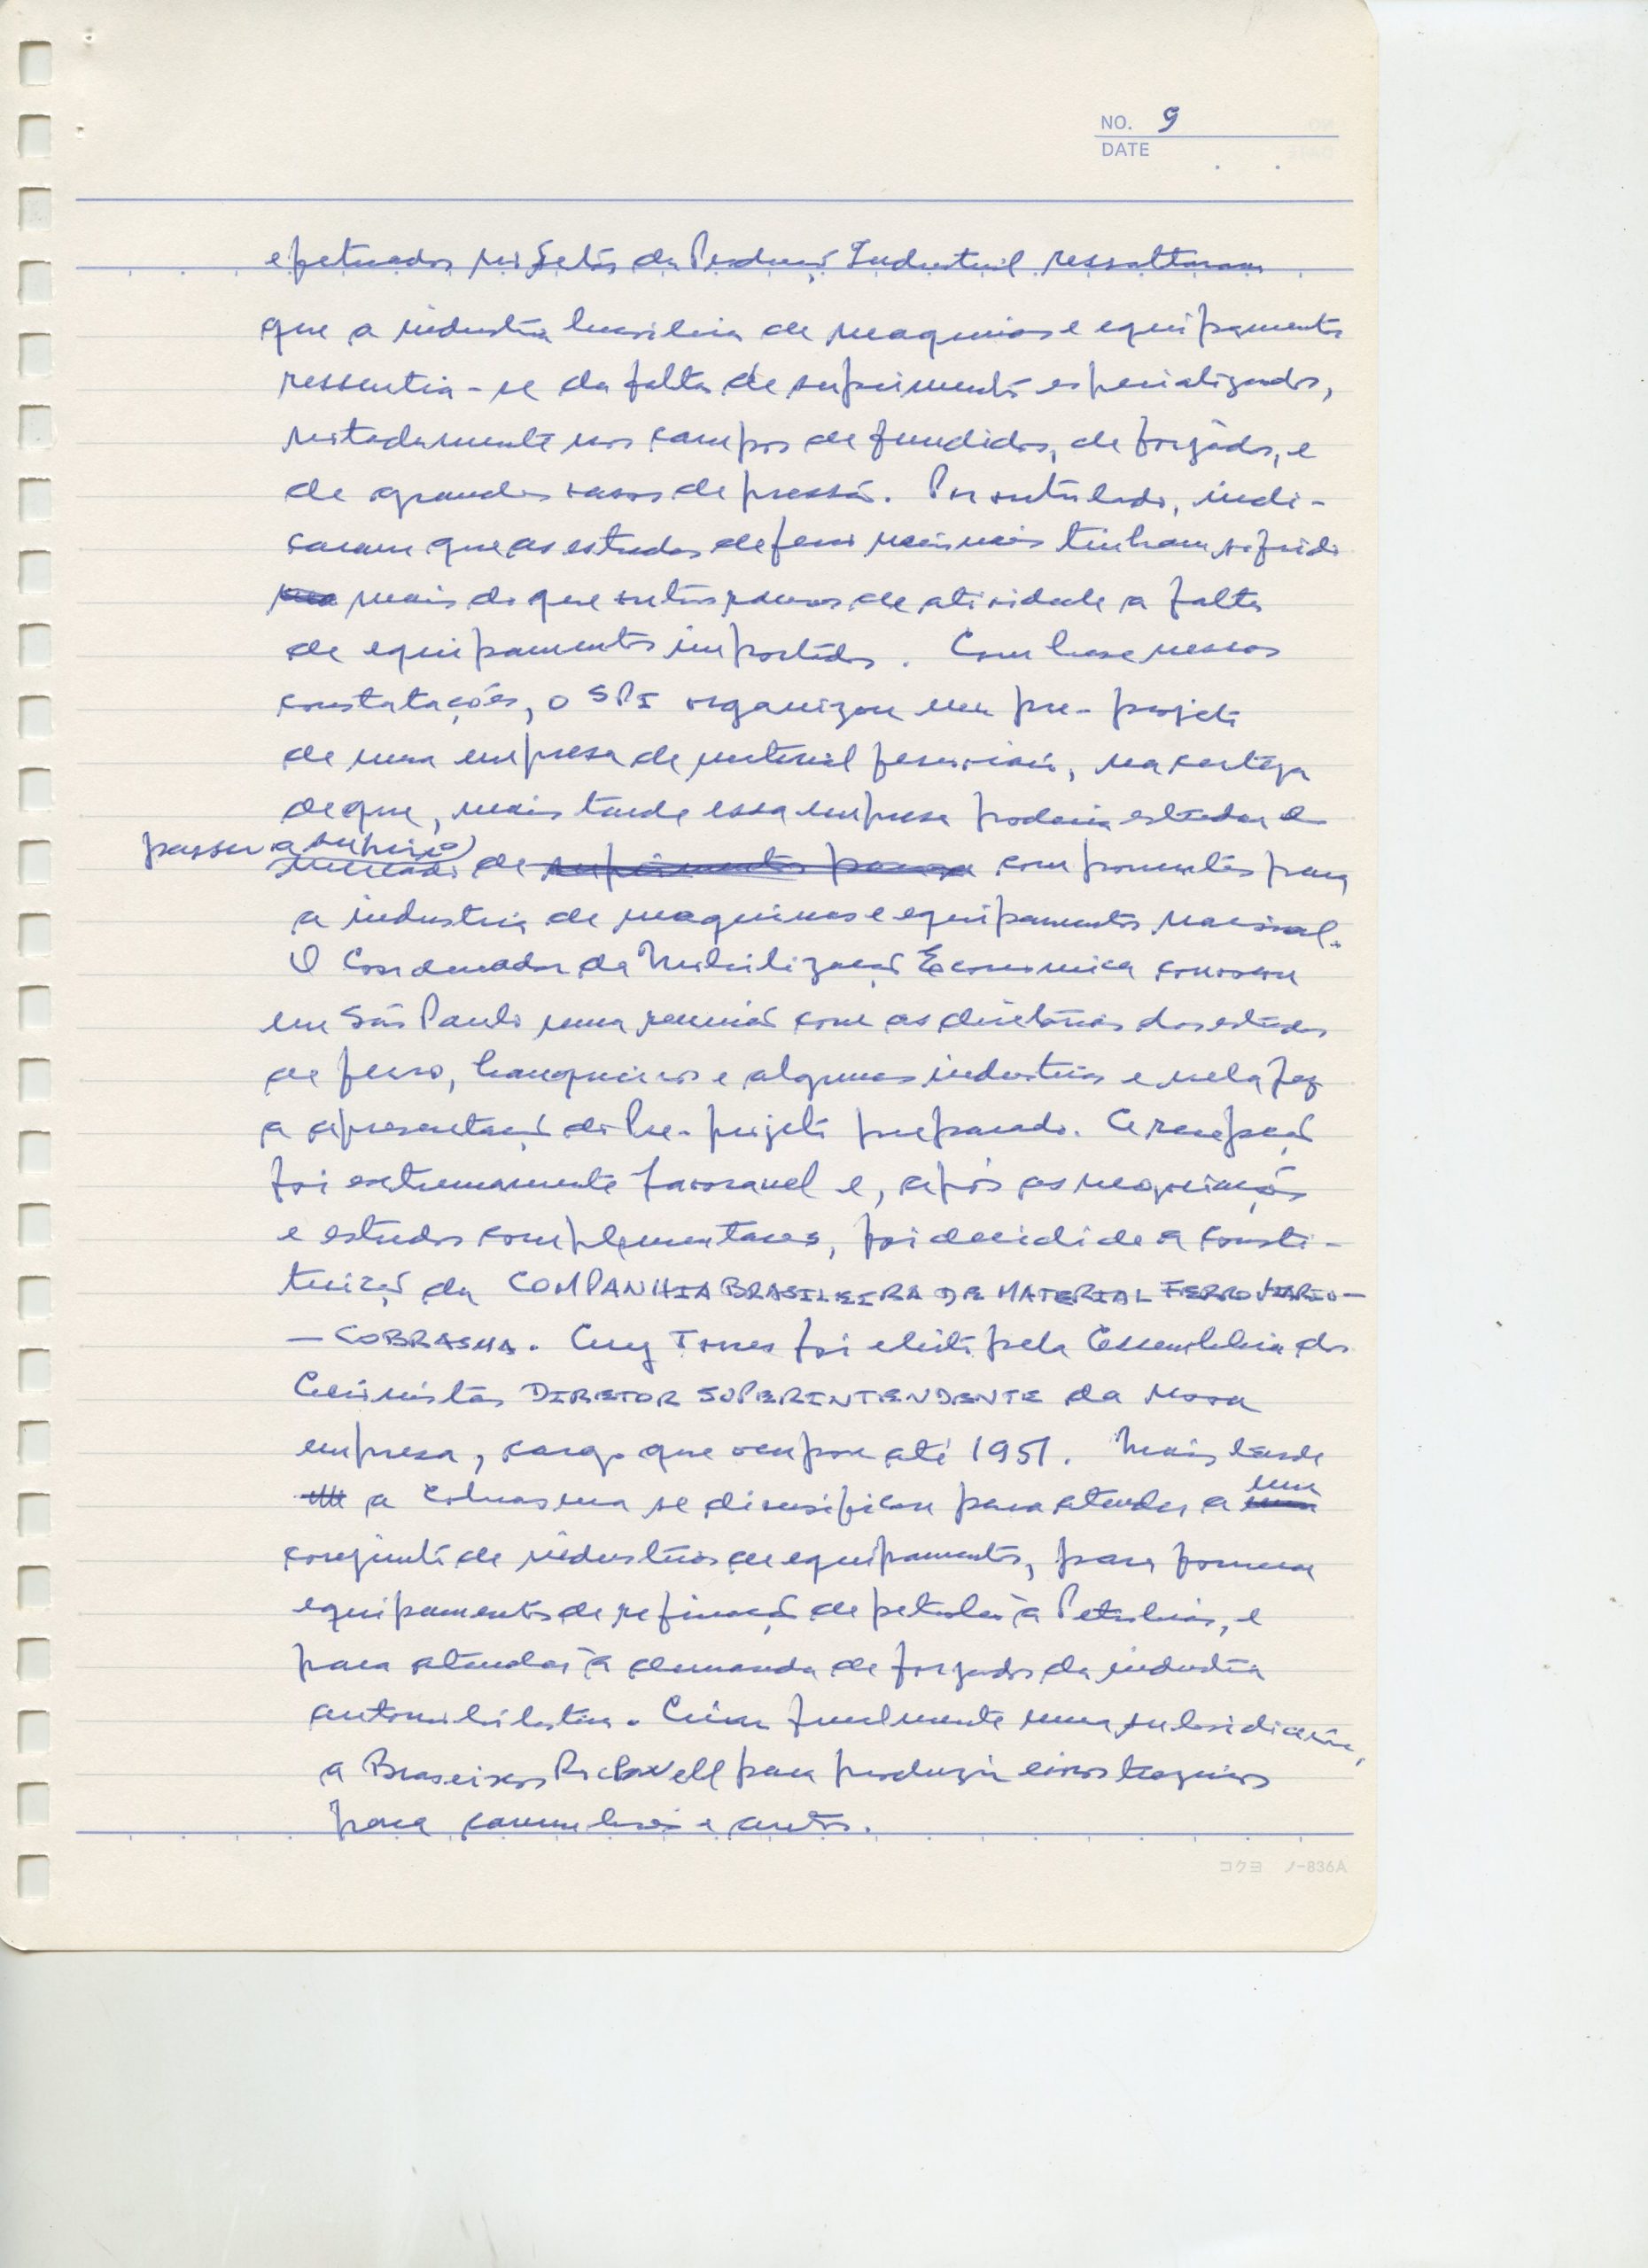 NO. 9
DATE
efetuados no Setor da Produção Industrial ressaltaram
que a industria brasileira de maquinas e equipamentos
ressentia-se da falta de suprimentos especializados,
notadamente nos campos de fundidos, de forjados, e
de grandes vasos de pressão. Por outro lado, indi-
caram que as estradas de ferro nacionais tinham sofrido
mais do que outros ramos de atividade a falta
de equipamentos importados. Com base nessas
constatações, o SPI organizou um pre-projeto
de uma empresa de material ferroviario, na certeza
de que, mais tarde essa empresa poderia estudar o
passar a suprir o
mercado de componentes para
a industria de maquinas e equipamentos nacional.
O Coordenador da Mobilização Economica convocou
em São Paulo uma reunião com as diretorias das estradas
de ferro, banqueiros e algumas industrias e nela fez
a apresentação do Pre-projeto preparado. A recepção
foi extremamente favoravel e, após as negociações
e estudos complementares, foi decidida a consti-
tuição da COMPANHIA BRASILEIRA DE MATERIAL FERROVIARIO-
- COBRASMA. Ary Torres foi eleito pela Assembleia dos
Acionistas DIRETOR SUPERINTENDENTE da nova
empresa, cargo que ocupou até 1951. Mais tarde
a Cobrasma se diversificou para atender a um
conjunto de industrias de equipamentos, para fornecer
equipamentos de refinação de petroleo à Petrobras, e
para atender à demanda de forjados da industria
automobilistica. Criou finalmente uma subsidiaria,
a Braseixos Rockwell para produzir eixos traseiros
para caminhões e autos.
コクヨ ノ-836A